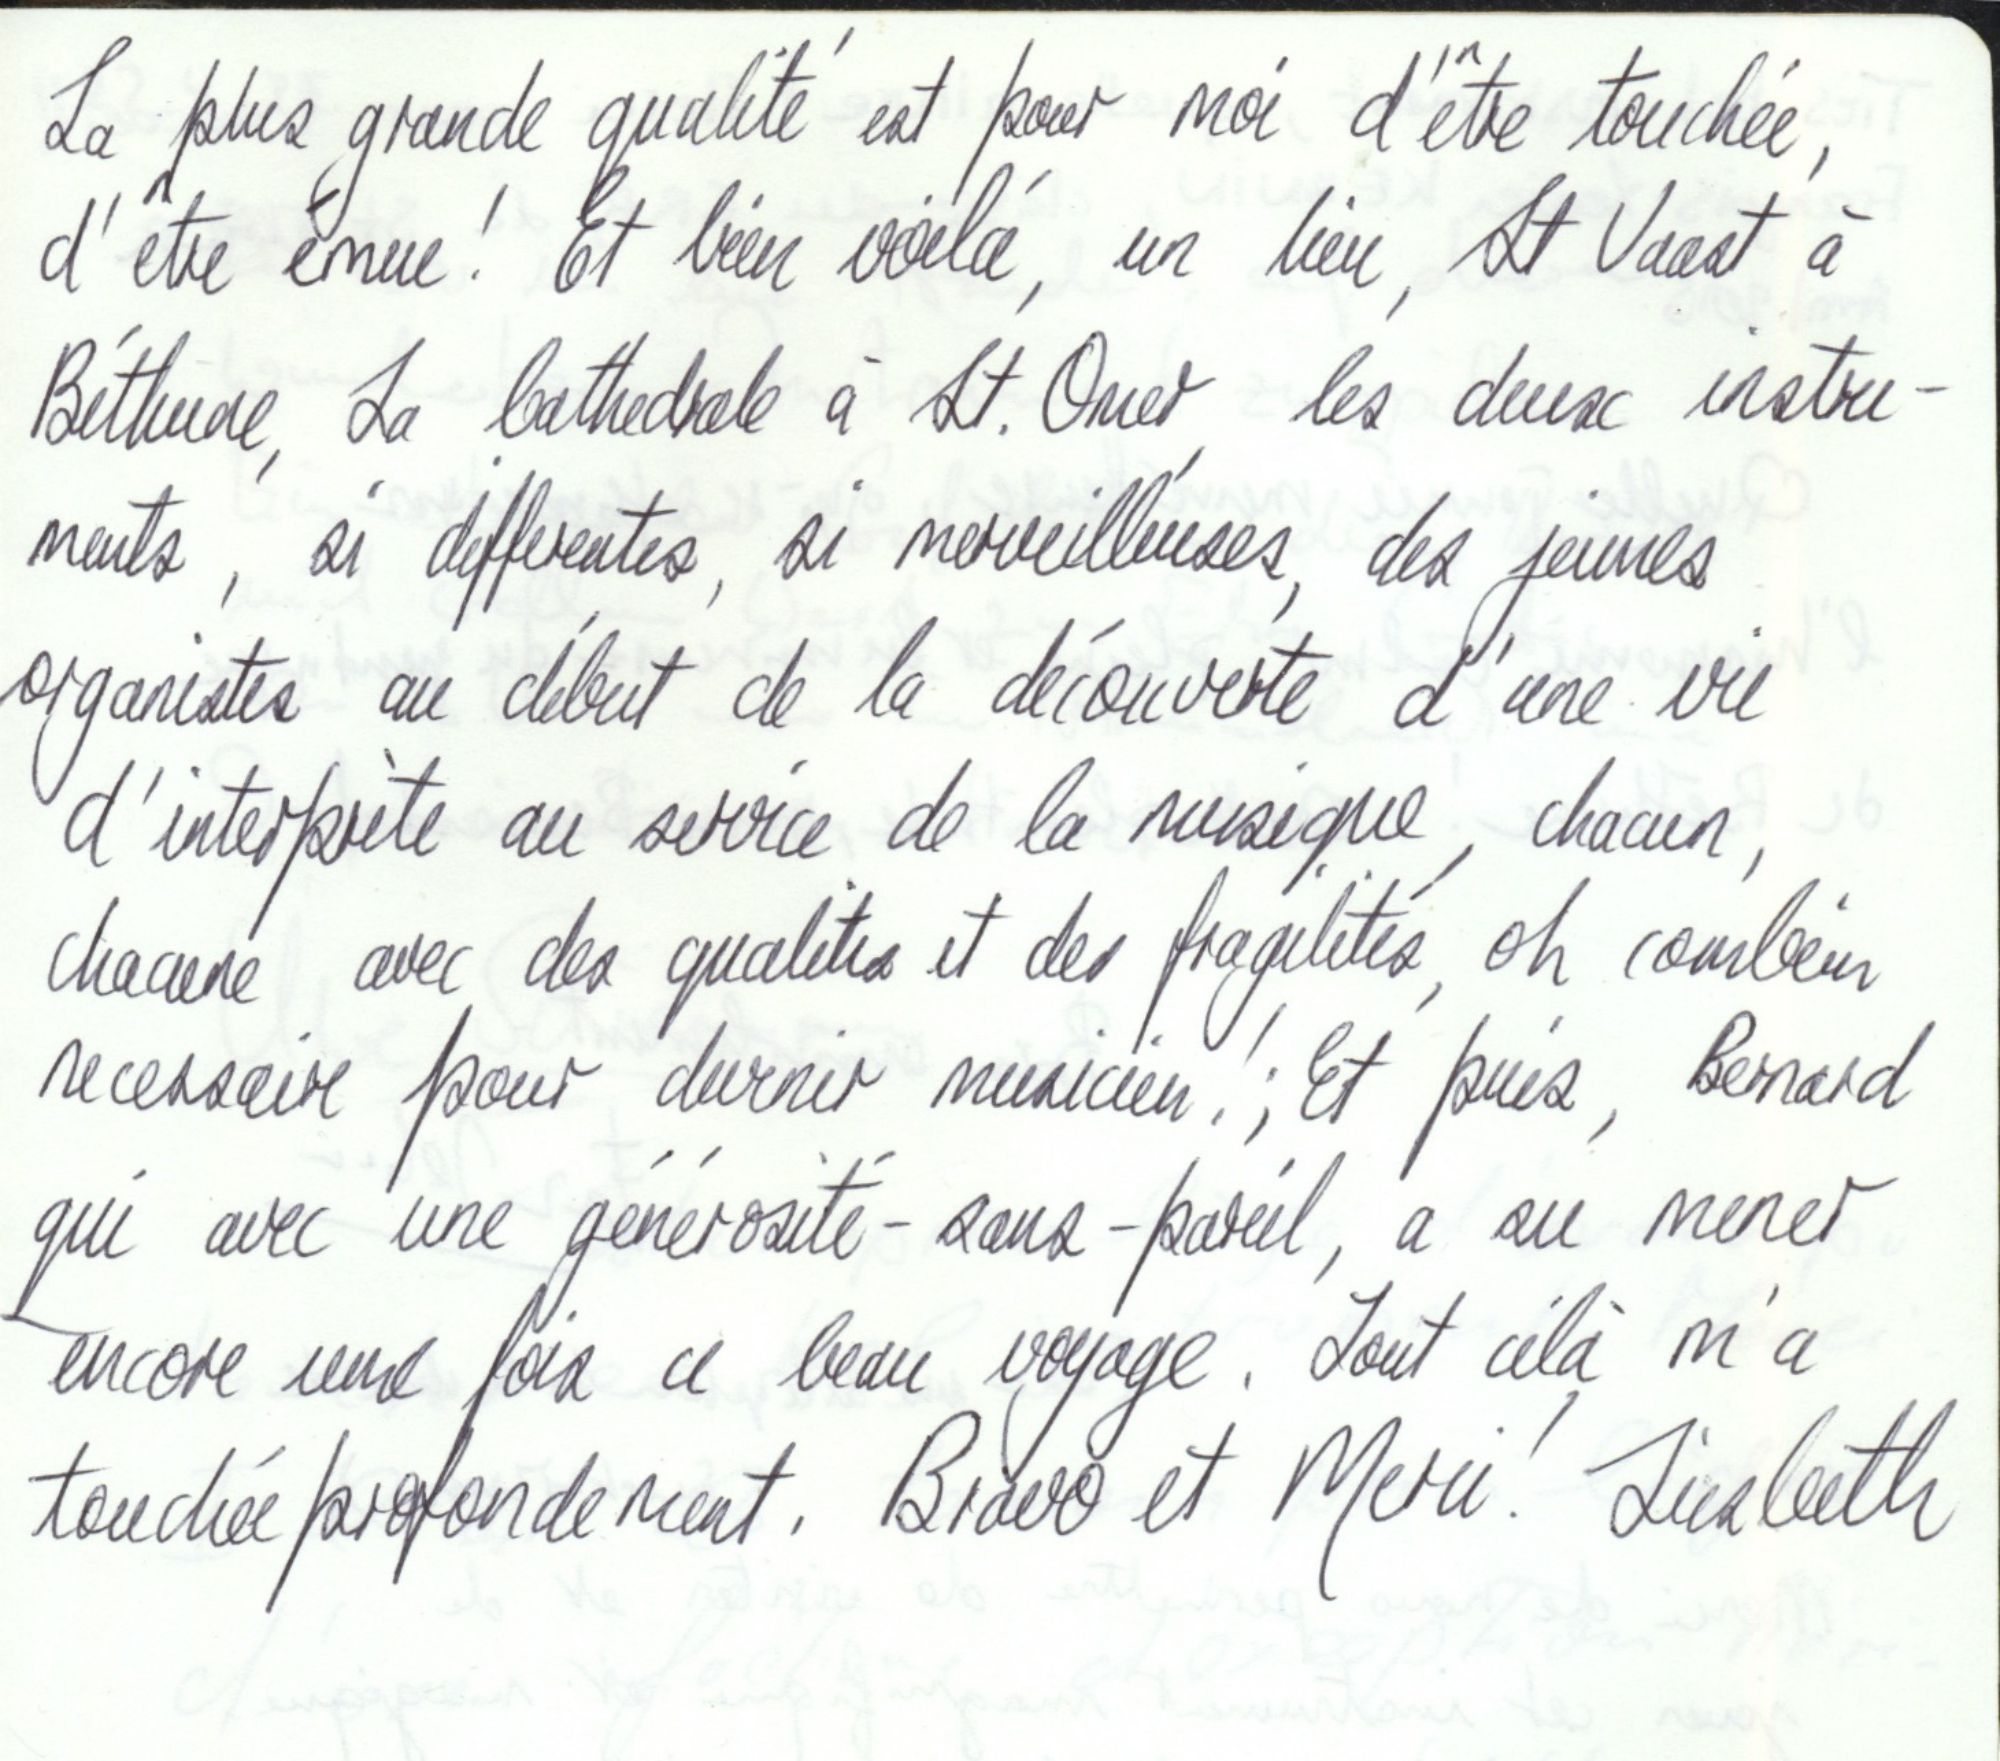 La plus grande qualité est pour moi d'être touchée,
d'être émue! Et bien voilà, un lieu, St Vaast à
Béthune, La Cathedrale à St. Omer, les deux instru-
ments, si differentes, si merveilleuses, des jeunes
organistes au début de la découverte d'une vie
d'interprète au service de la musique, chacun,
chacune avec des qualités et des fragilités, oh combien
necessaire pour devenir musicien!; Et puis, Bernard
qui avec une générosité-sans-pareil, a su mener
encore une fois ce beau voyage. Tout celà m'a
touchée profondement. Bravo et Merci! Liesbeth